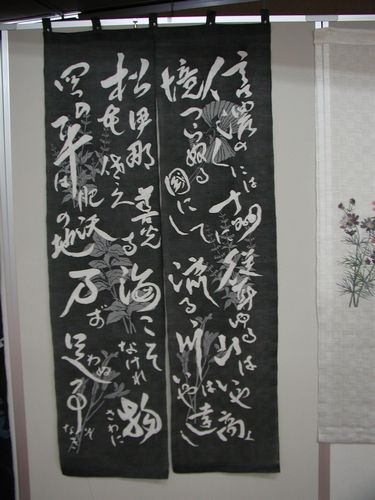 信濃の国は十州に
境つらぬる国にして
聳ゆる山はいや高し
流る川はいや遠し
松本伊那佐久善光寺
四の平は肥沃の地
海こそなけれ物さわに
万ず足わぬ事ぞなき